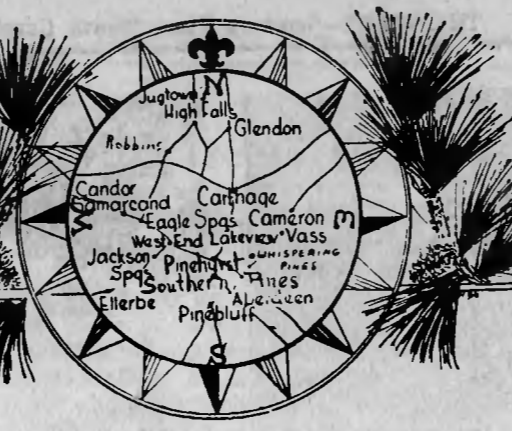 N
Jugtown
High Falls
Glendon
Robbins
Candor
Samarcand
Carthage
Eagle Spgs Cameron
W
E
West End Lakeview Vass
Jackson
Spgs
Pinehurst
WHISPERING
PINES
Southern Pines
Ellerbe
Aberdeen
Pinebluff
S